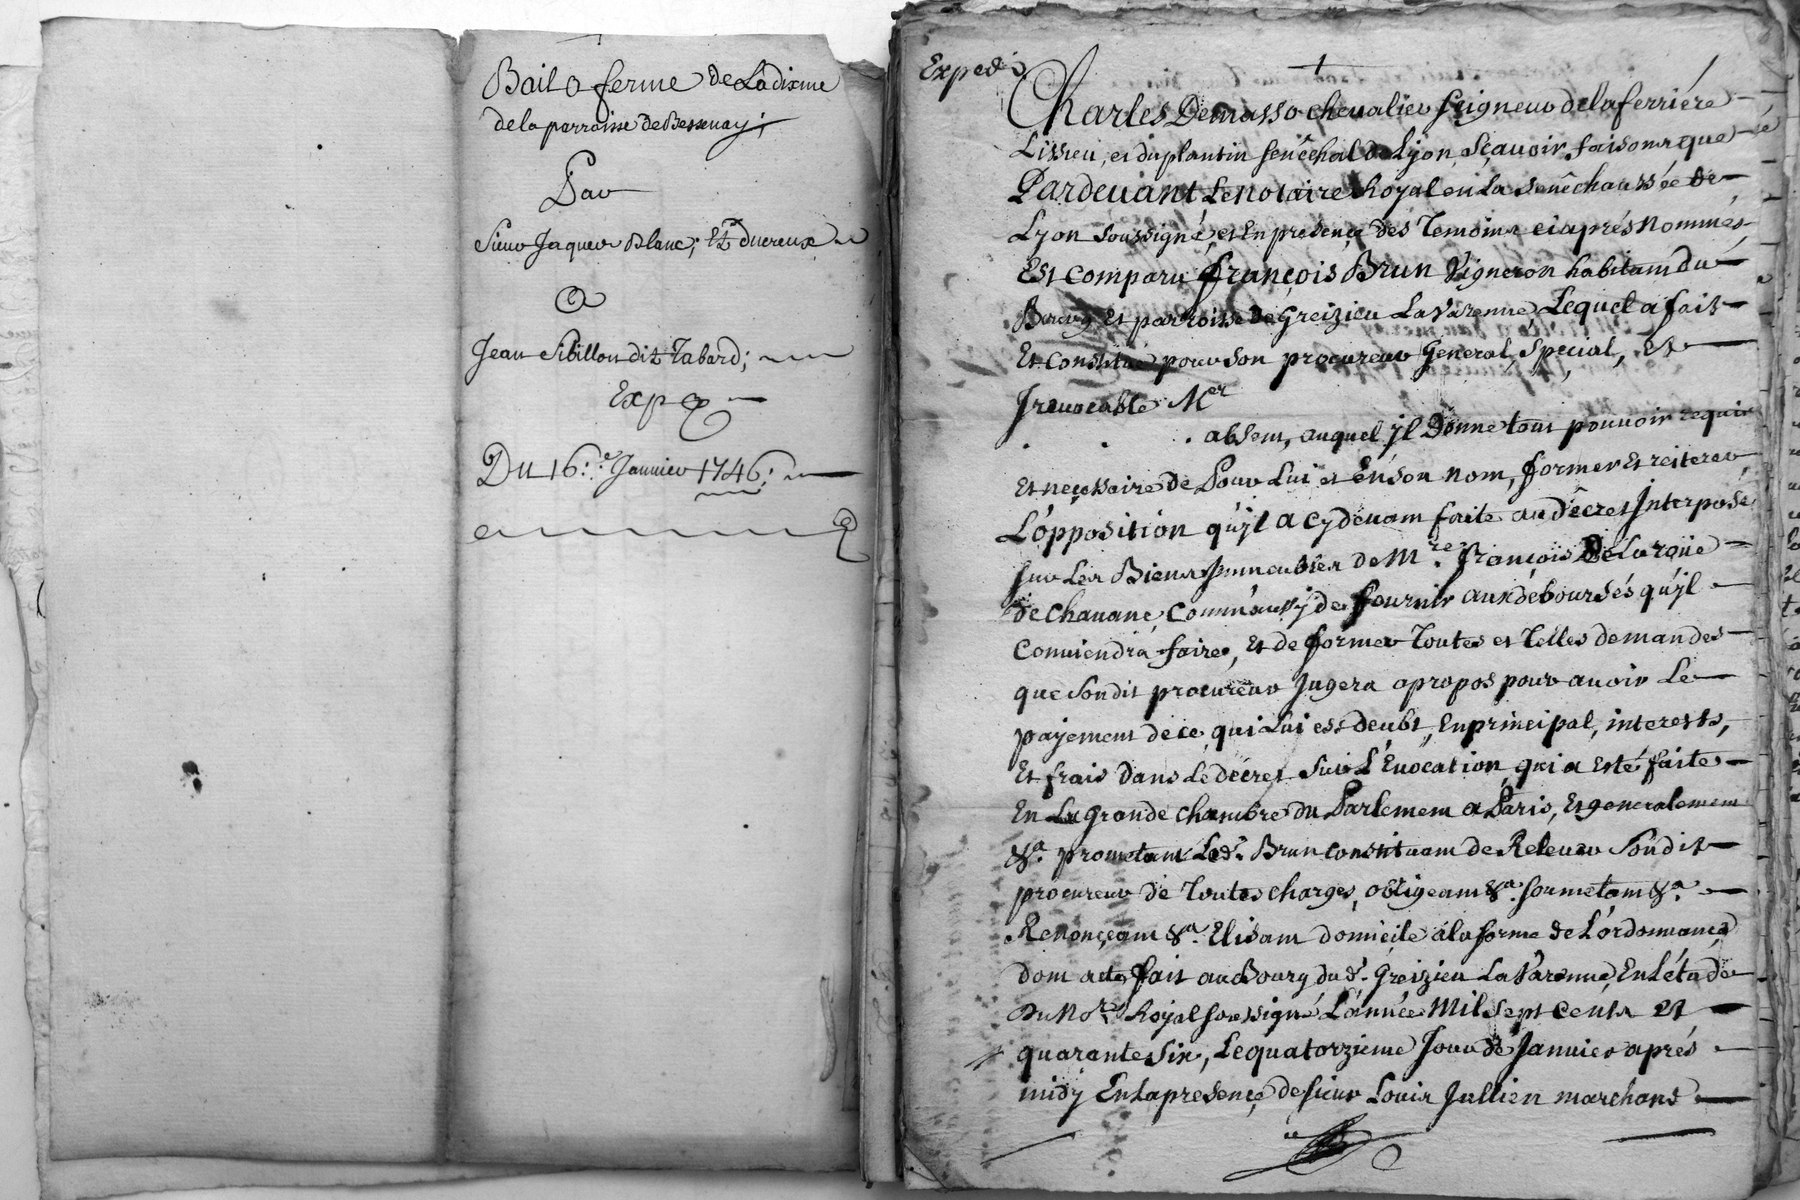 Bail a ferme de La dixme
de la parroisse de Bessenay;
Par
Sieur Jaques Blanc; Et ducreux
A
Jean Sibillon dit Tabard;
Exp
Du 16.e Janvier 1746;
Exped
Charles Demasso chevalier seigneur de la ferriére
Lissieu, et du plantin senêchal de Lyon sçavoir faisons que
Pardevant Le notaire Royal en La senêchaussée de
Lyon soussigné, et En presençe des Temoins ciaprés nommés,
Est comparu françois Brun Vigneron habitant du
Bourg Et parroisse de Greizieu La Varenne Lequel a fait
Et constitué pour son procureur General, Spécial, et
Irrevocable Mer
. . . absent, auquel jl Donne tout pouvoir requis
Et neçessaire de Pour Lui et En son nom, former Et reiterer
L'opposition qu'jl a cy devant faite au dêcret Interposé
sur Les Biens Immeubles de Mre. François De Laroüe
de chavane, comm'aussj de fournir aux débourses qu'jl
conviendra faire, Et de former Toutes et Telles demandes
que Sondit procureur Jugera apropos pour avoir Le
payement de ce, qui Lui est deubt, En principal, interests,
Et frais dans Le décret sur L'Evocation qui a Esté faite
En La grande chambre du Parlement a Paris, Et generalement
&a. prometant Led. Brun constituant de Relever Son dit
procureur de Toutes charges, obligeant &a. soumetant &a.
Renonçeant &a. Elisant domiçile a la forme de L'ordonnançe
dont acte fait au Bourg dud. Greizieu La Varenne, En L'étude
Du Nore. Royal soussigné L'année Mil Sept cents et
quarante Six, Le quatorzieme Jour de Janvier aprés
midy En La presençe de sieur Louis Jullien marchand